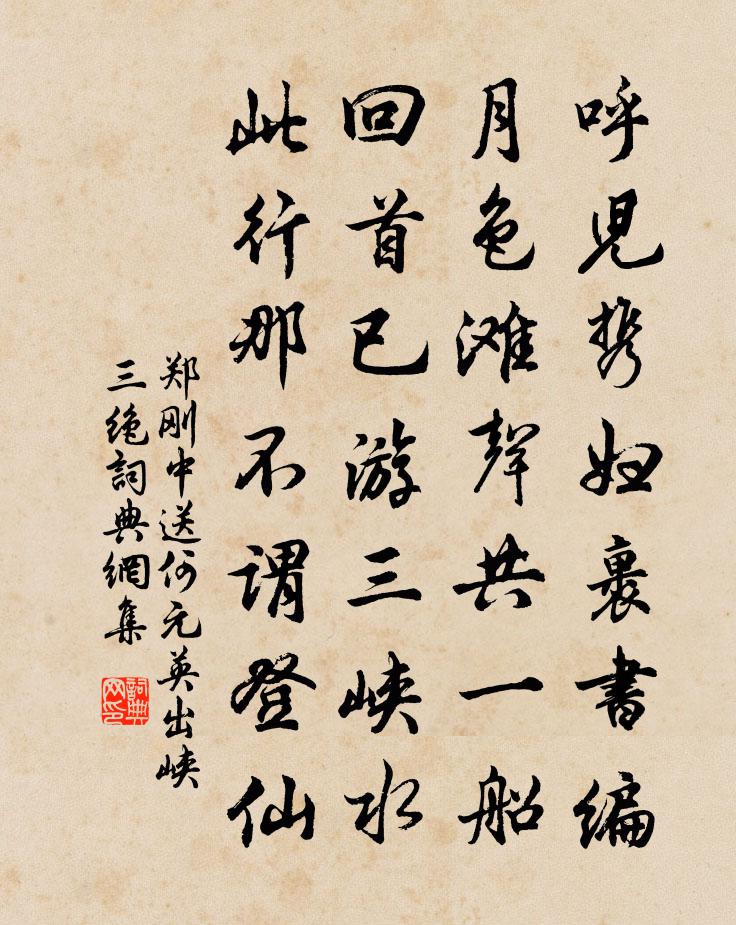 呼児携妇裹書编
月色滩聲共一船
回首已游三峡水
此行那不谓登仙
郑刚中送何元英出峡
三絶詞典網集
詞典网印